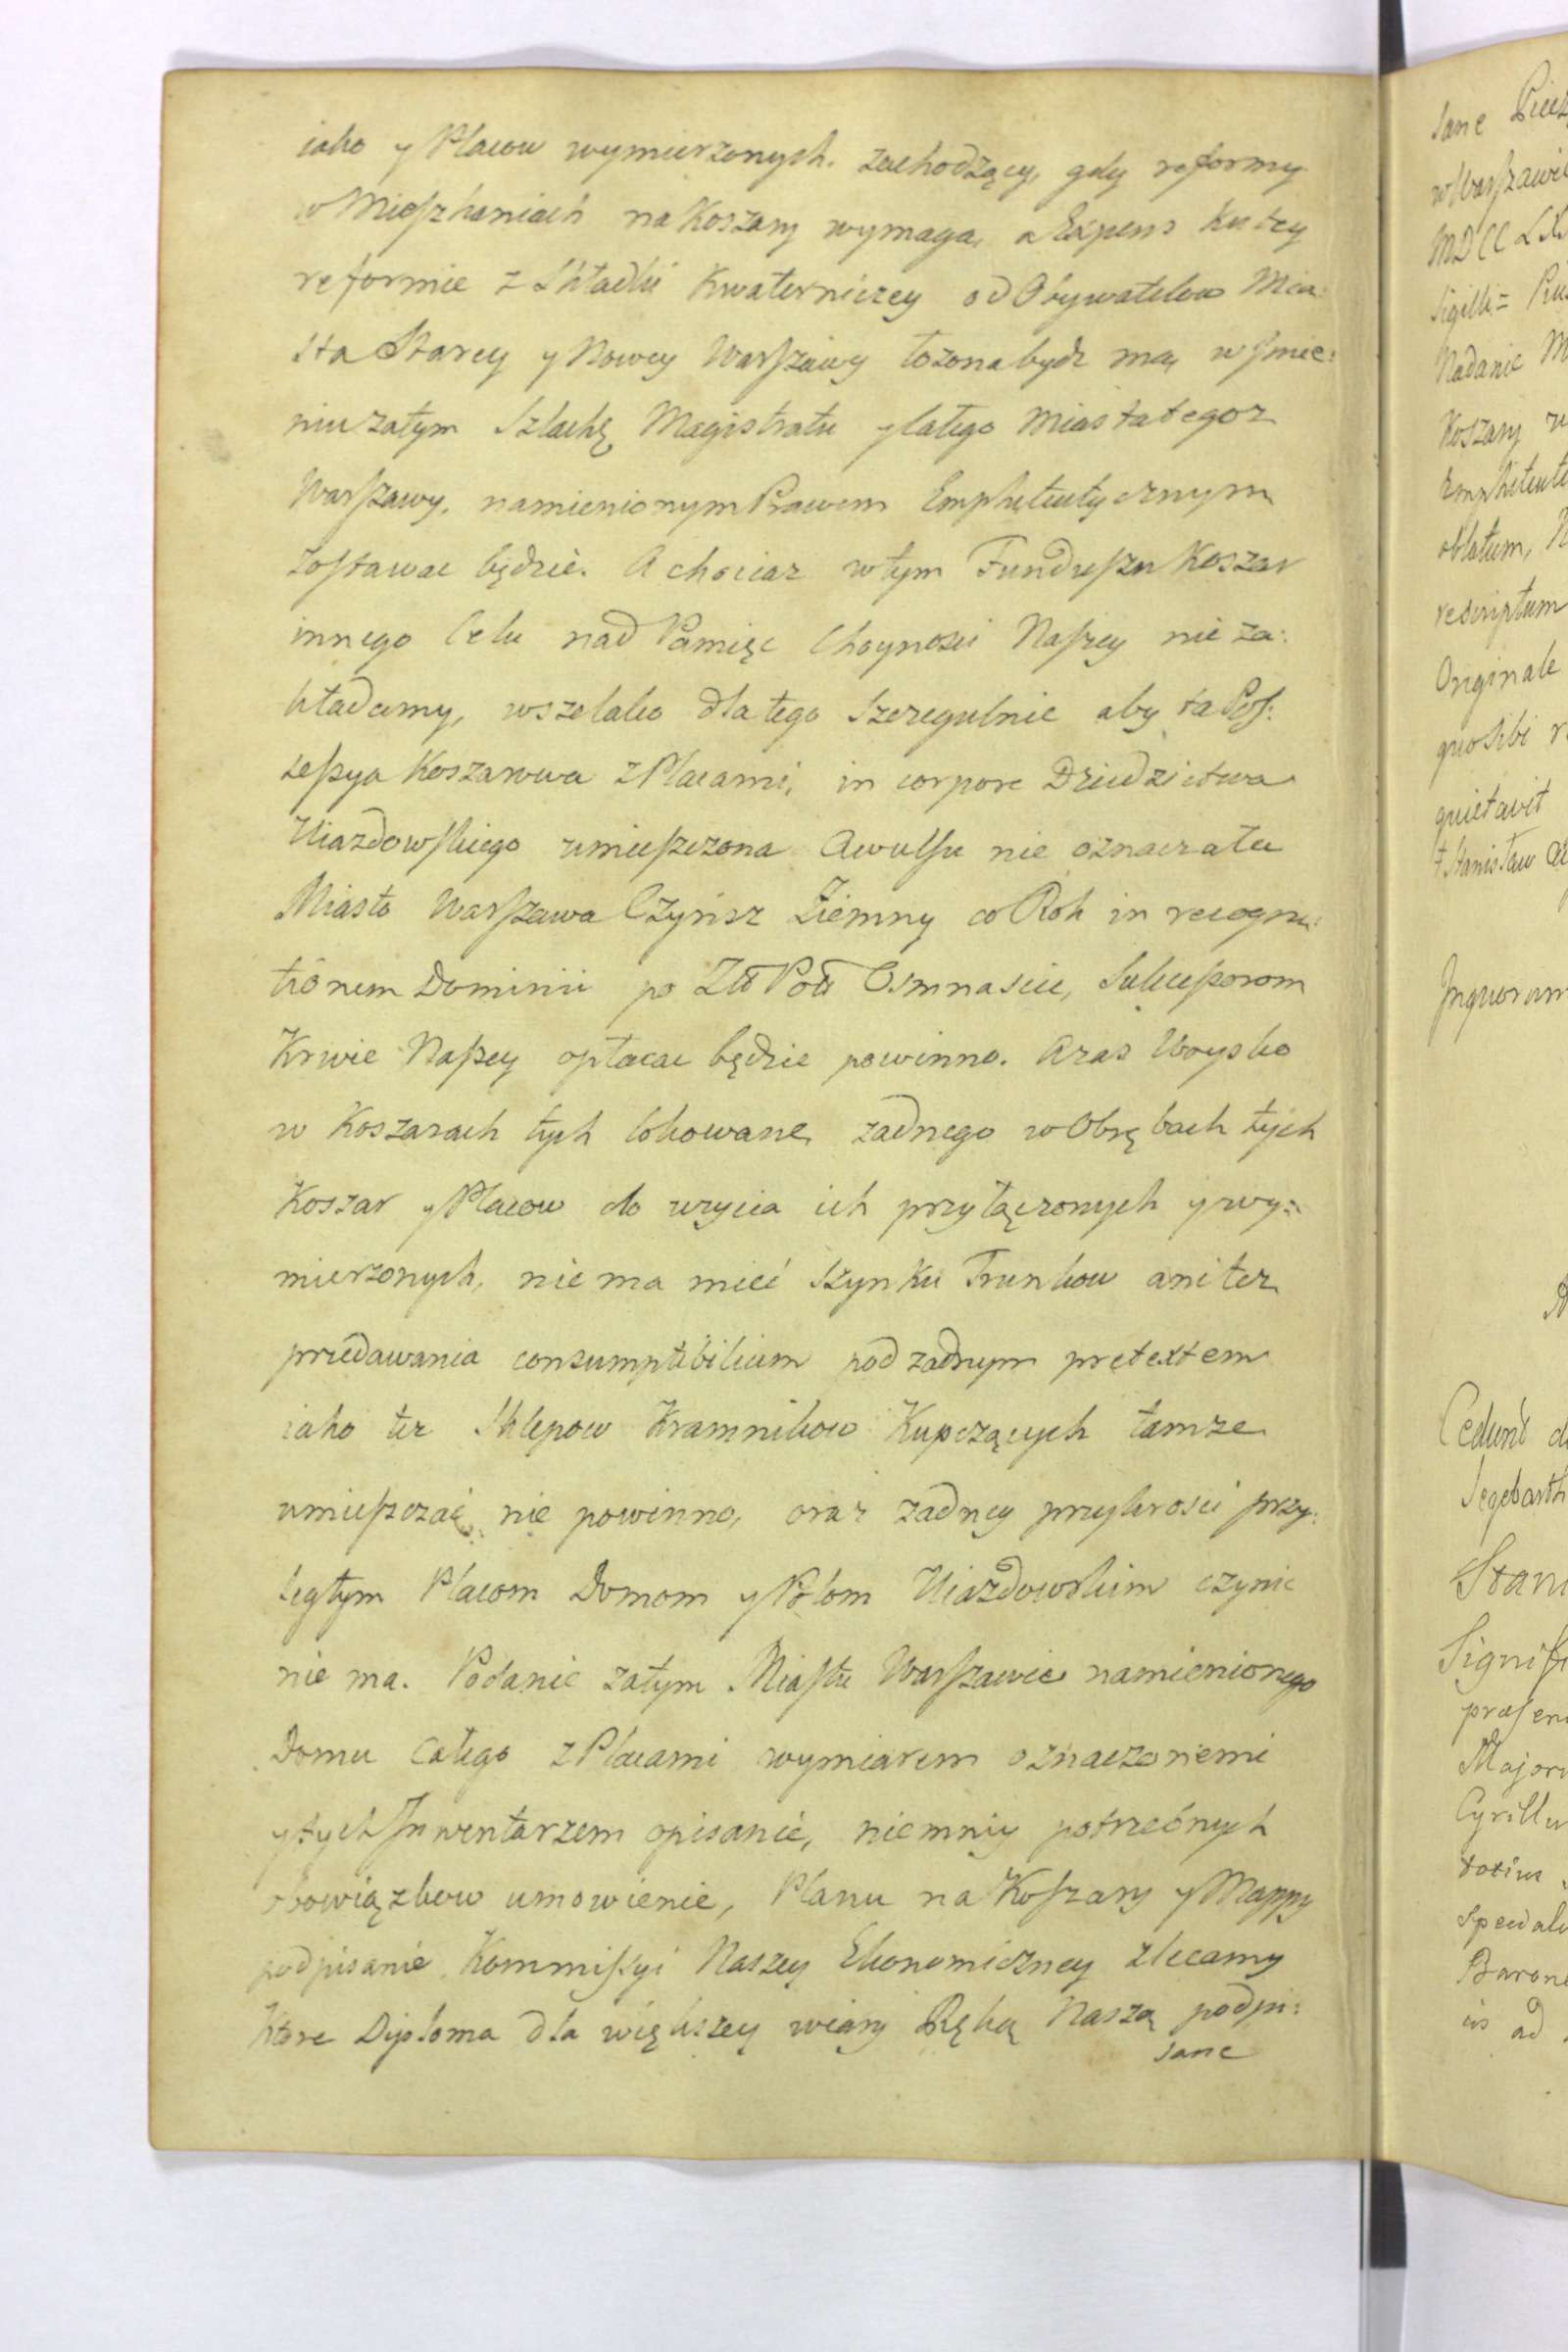 iako y Placow wymierzonych. zachodzący, gdy reformy
w Mieszkaniach na Koszary wymaga, a Expens ku tey
reformie z Składki Kwaterniczey od Obywatelow Mia:
sta Starey y Nowey Warszawy łozona bydz ma, w Imie:
niu zatym Szlachę Magistratu y całego Miasta tegoz
Warszawy. namienionym Prawem Emphiteutycznym
zostawac będzie. A chociaz w tym Funduszu Koszar
innego Celu nad Pamięc Choynosci Naszey nie za:
kładamy, wszelako dla tego szczegulnie aby ta Pos:
sessya Koszarowa z Placami, in corpore Dziedzictwa
Uiazdowskiego umieszczona Awulsu nie oznaczała
Miasto Warszawa Czynsz Ziemny co Rok in recogni:
tionem Dominii po Złł Poll Osmnascie, Sukcessorom
Krwie Naszey opłacac będzie powinno. A zas Woysko
w Koszarach tych lokowane, zadnego w Obrębach tych
Koszar y Placow do uzycia ich przyłączonych y wy:
mierzonych, nie ma mieć szynku Trunkow ani tez
przedawania consumptibilium pod zadnym pretextem
iako tez Sklepow Kramnikow Kupczących tamze
umieszczać nie powinno, oraz zadney przykrosci przy:
ległym Placom Domom y Polom Uiazdowskim czynic
nie ma. Podanie zatym Miastu Warszawie namienionego
Domu całego z Placami wymiarem oznaczonemi
y tych Inwentarzem opisanie, niemniy potrzebnych
obowiązkow umowienie, Planu na Koszary y Mappy
podpisanie Kommissyi Naszey Ekonomiczney zlecamy
Ktore Dyploma dla większey wiary Ręką Naszą podpi:
sane
sane
w Warszawie
Sigilli=
Nadanie
Koszary
oblatum,
rescriptum
Originale
quo Sibi
quietavit
Stanisław
Cedunt
Cyrillu
totius
ad